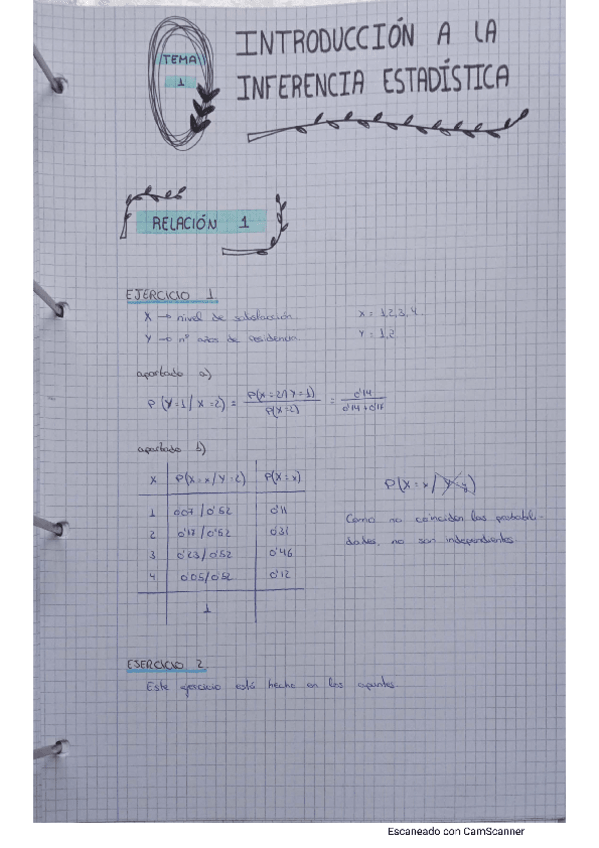 TEMA
1
INTRODUCCIÓN A LA
INFERENCIA ESTADÍSTICA
RELACIÓN 1
EJERCICIO 1
X → nivel de satisfacción
X = 1,2,3,4
Y → nº años de residencia
Y = 1,2
apartado a)
P(Y=1/X=2) = P(X=2∩Y=1) / P(X=2) = 0'14 / 0'14+0'17
apartado b)
X P(X=x/Y=2) P(X=x)
1 0'07/0'52 0'11
2 0'17/0'52 0'31
3 0'23/0'52 0'46
4 0'05/0'52 0'12
1
P(X=x/
Como no coinciden las probabili-
dades, no son independientes.
EJERCICIO 2
Este ejercicio está hecho en los apuntes
Escaneado con CamScanner